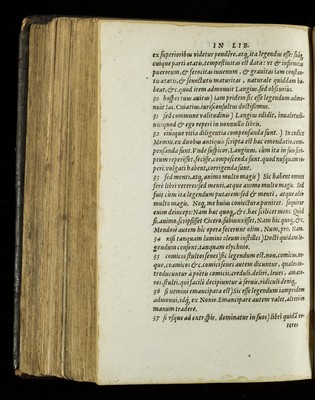 IN LIB.
ex superioribus videtur pendêre. atq, ita legendum esse: suáq
cuique parti ætatis, tempestiuitas est data: vt & infirmitas
puerorum, & ferocitas iuuenum, & grauitas iam constan-
tis ætatis, & senectutis maturitas, naturale quiddam ha-
beat, &c. quod item admonuit Langius. sed obscuriùs.
30 hospes tuus auitus) iam pridem sic esse legendum admo-
nuit Iac. Cuiatius, iurisconsultus doctissimus.
31 sed commune valitudinis) Langius edidit, inualetudi-
nis: quod & ego reperi in nonnullis libris.
32 eiúsque vitia diligentia compensanda sunt.) In codice
Memm. ex duobus antiquis scripta est hæc emendatio, com-
pensanda sunt. Vnde suspicor, Langium, cùm ita in suo scri-
ptum reperisset, fecisse, compescenda sunt. quod nusquam re-
peri. vulgati habent, corrigenda sunt.
33 sed menti, atq, animo multo magis) Sic habent omnes
ferè libri veteres: sed menti, atque animo multo magis. Sed
sunt cùm ita legendum putarem: sed & menti, atque ani-
mo multo magis. Neq, me huius coniecturæ pœnitet. sequitur
enim deinceps: Nam hæc quoq, &c. hæc scilicet mens. Quòd
si, animo, scripsisset Cicero, subiunxisset, Nam hic quoq, &c.
34 nisi tanquam lumini oleum instilles) Docti quidam le-
gendum censent, tanquam elychnio.
35 comicos stultos senes) sic legendum est, non, comicus. ne-
que, comicos &c. comici senes autem dicuntur, quales in-
troducuntur à poëtis comicis, creduli, deliri, leues, amato-
res, stulti, qui facilè decipiuntur à seruis, ridiculi deniq,
36 si nemini emancipata est) Sic esse legendum iampridem
admonui, idq, ex Nonio. Emancipare autem valet, alteri in
manum tradere.
37 si vsque ad extr. spir. dominatur in suos) libri quidã ve-
teres